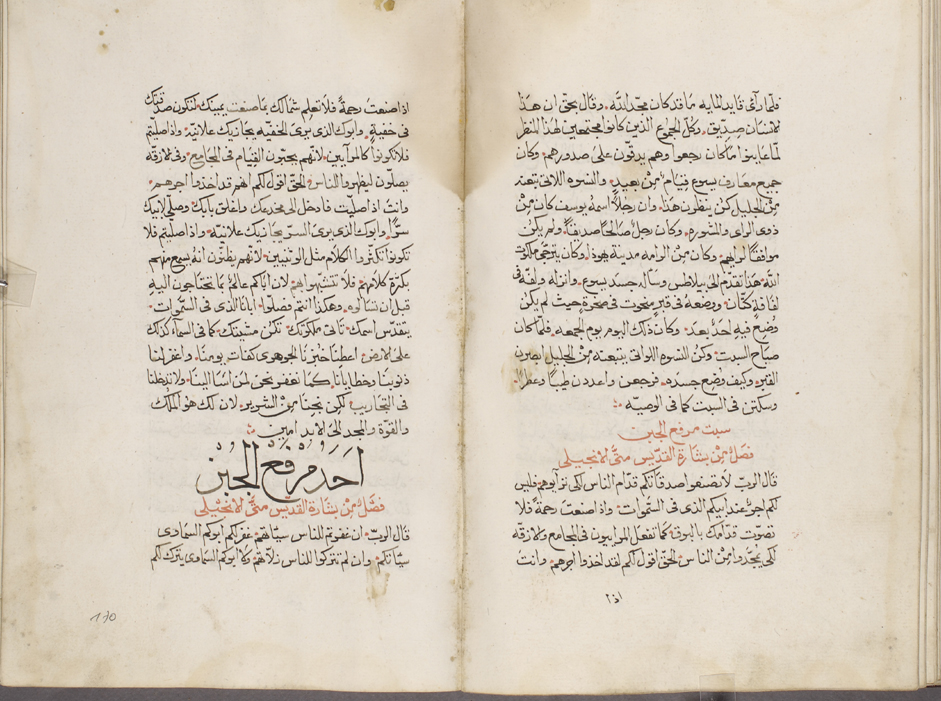 فلما رآى قايد الماية ما قد كان مجد الله. وقال بحق ان هذا
لانسان صديق. وكل الجموع الذين كانوا مجتمعين لهذا المنظر
لما عاينوا ما كان رجعوا وهم يدقون على صدورهم. وكان
جميع معارف يسوع قيام من بعيد. والنسوه اللاتى تبعنه
من الجليل كن ينظرون هذا. وان رجلا اسمه يوسف كان من
ذوى الراى والمشوره. وكان رجل صالحا صديقا. ولم يكن
موافقا لرايهم. وكان من الرامه مدينة يهوذا. وكان يترجى ملكوت
الله. هذا تقدم الى بيلاطس وسال جسد يسوع. وانزله ولفه فى
لفافة كتان. وضعه فى قبر منحوت فى صخرة حيث لم يكن
وضع فيه احد بعد. وكان ذلك اليوم يوم الجمعه. فلما كان
صباح السبت. وكن النسوه اللواتى يتبعنه من الجليل ابصرن
القبر. وكيف وضع جسده. فرجعن واعددن طيبا وعطرا.
وسكتن فى السبت كما فى الوصيه
سبت مرفع الجبن
فصل من بشارة القديس متى الانجيلى
قال الرب لا تصنعوا صدقاتكم قدام الناس لكى تراوهم فليس
لكم اجر عند ابيكم الذى فى السموات. واذا صنعت رحمة فلا
تصوت قدامك بالبوق. كما تفعل المراييون فى المجامع والازقه
لكى يمجدوا من الناس. الحق اقول لكم لقد اخذوا اجرهم. وانت
اذا
اذا صنعت رحمة فلا تعلم شمالك بما صنعت يمينك. لتكون صدقتك
فى خفية. وابوك الذى يرى الخفيه يجازيك علانيه. واذا صليتم
فلا تكونوا كالمرآيين. لانهم يحبون القيام فى المجامع. وفى الازقه
يصلون ليظهروا للناس. الحق اقول لكم انهم قد اخذوا اجرهم.
وانت اذا صليت فادخل الى مخدعك واغلق بابك. وصلى لابيك
سرا. وابوك الذى يرى السر يجازيك علانية. واذا صليتم فلا
تكونوا تكثروا الكلام مثل الوثنيين. لانهم يظنون انه يسمع منهم
بكثرة كلامهم. فلا تتشبهوا بهم لان اباكم عالم بما تحتاجون اليه
قبل ان تسالوه. وهكذا انتم فصلوا. ابانا الذى فى السموات.
يتقدس اسمك. تاتى ملكوتك. تكن مشيتك. كما فى السماء كذلك
على الارض. اعطنا خبزنا الجوهرى كفات يومنا. واغفر لنا
ذنوبنا وخطايانا. كما نغفر نحن لمن اسا الينا. ولا تدخلنا
فى التجاريب. لكن نجنا من الشرير. لان لك هو الملك
والقوة والمجد الى الابد امين
احد مرفع الجبن
فصل من بشارة القديس متى الانجيلى
قال الرب. ان غفرتم للناس سياتهم. غفر لكم ابوكم السماوى
سياتكم. وان لم تتركوا للناس زلاتهم. ولا ابوكم السماوى يترك لكم
130